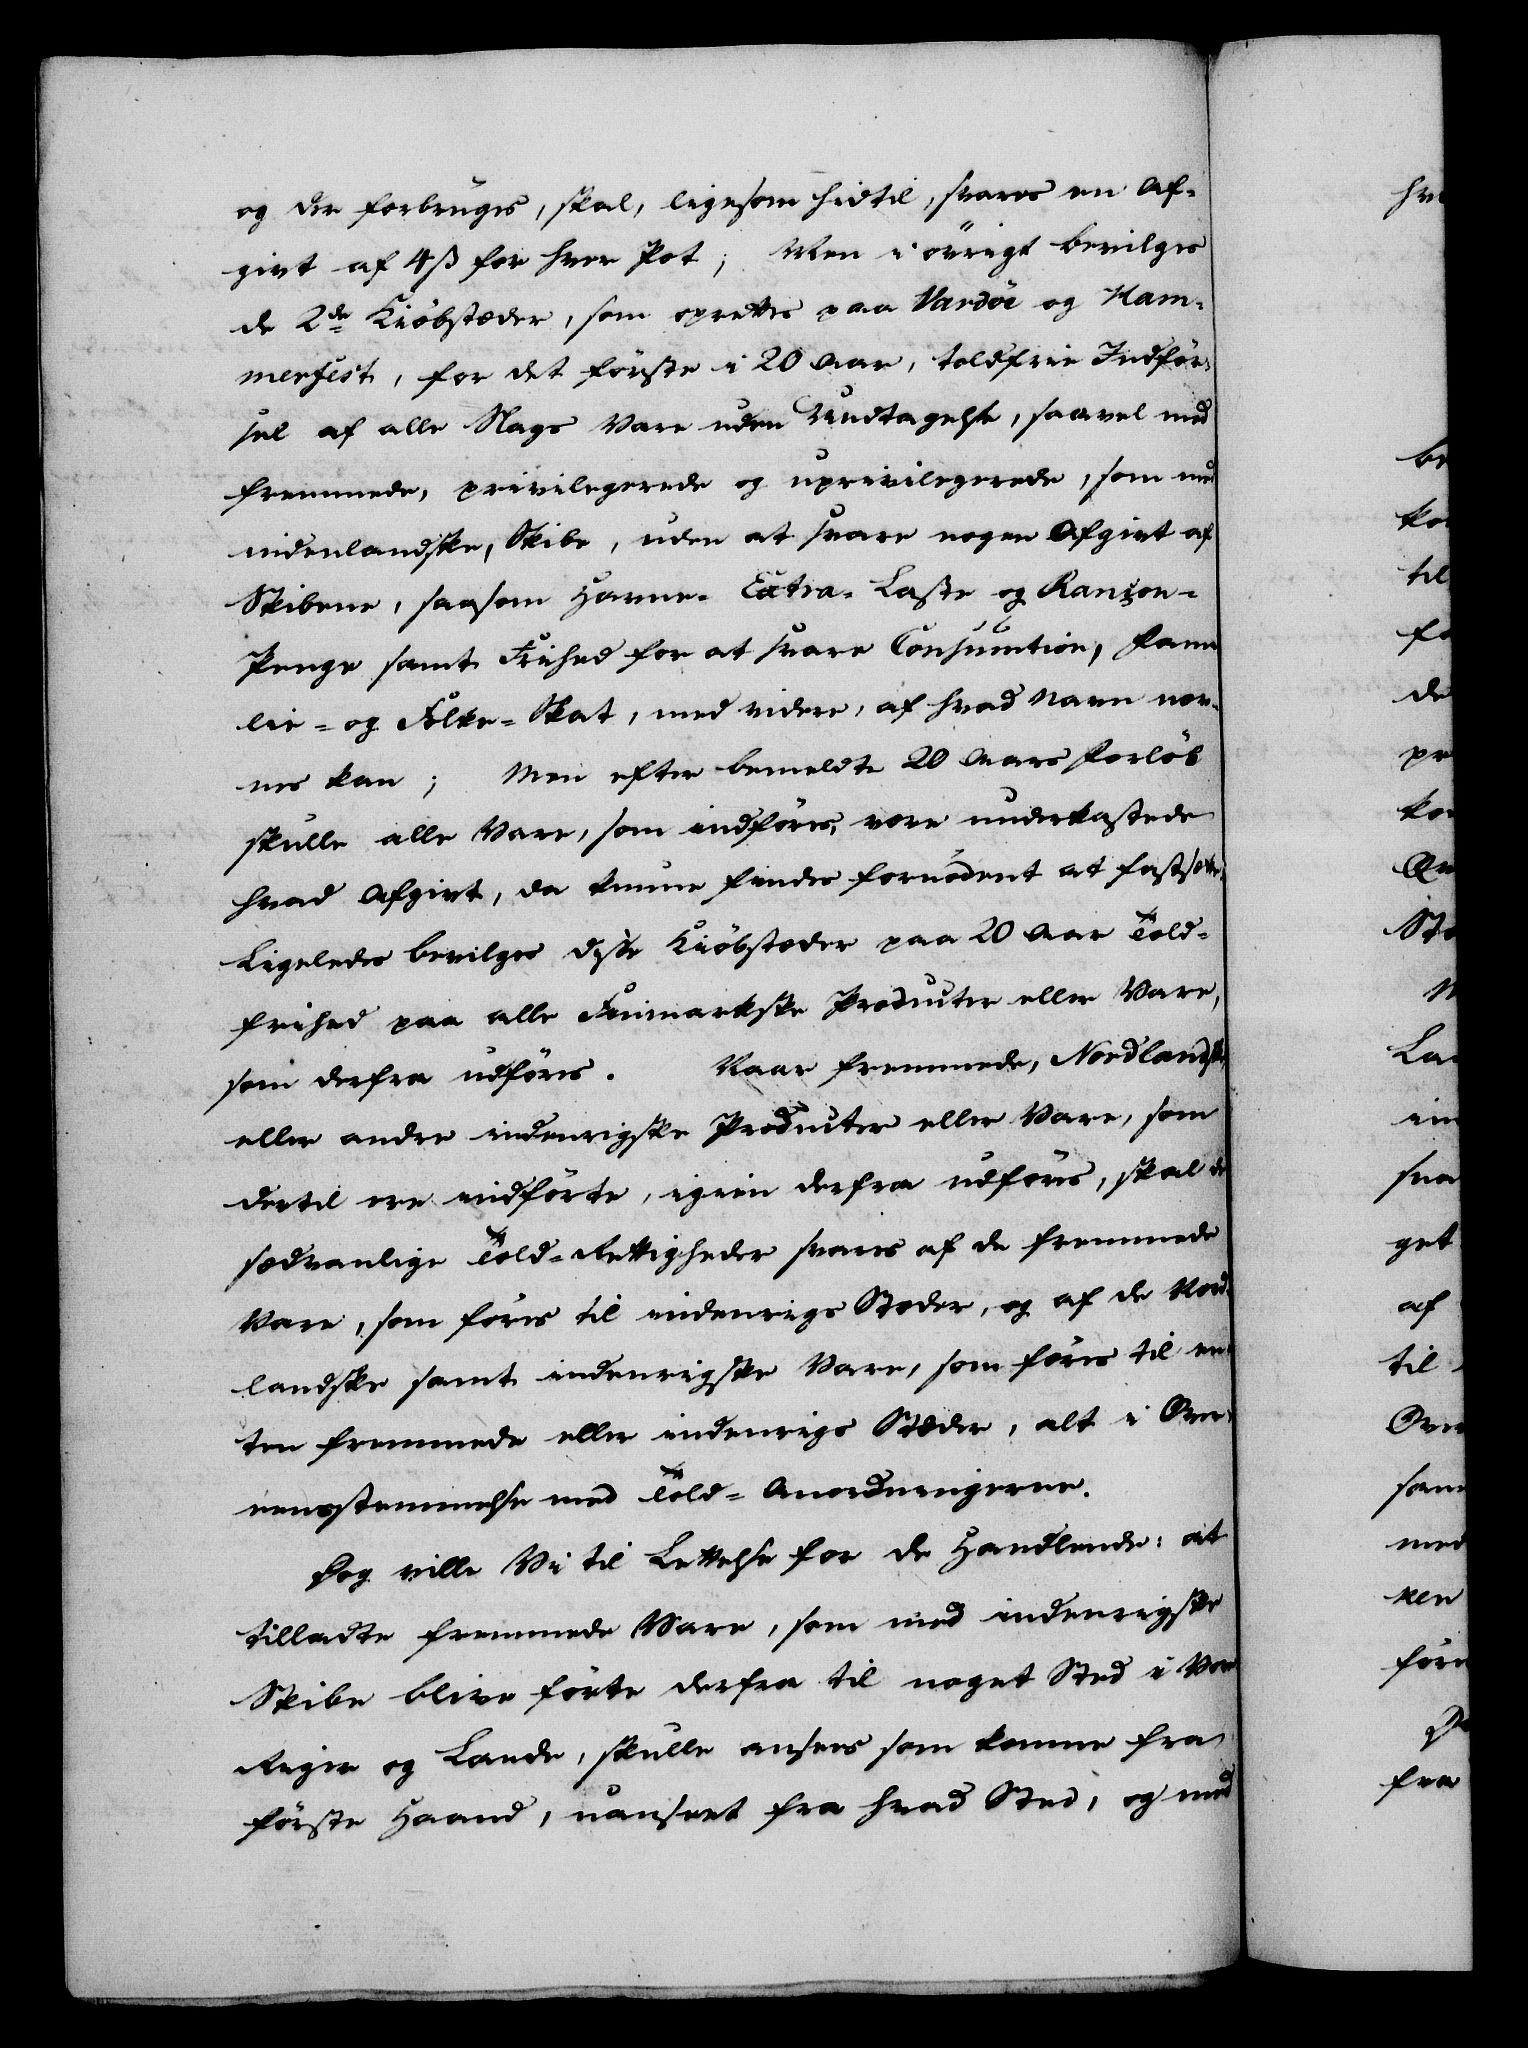 og der forbruges, skal, ligesom hidtil, svares en Af-
givt af 4ß for hver Pot; Men i övrigt bevilges
de 2de Kiöbstæder, som oprettes paa Vardöe og Ham-
merfest, for det förste i 20 Aar, toldfrie Indför-
sel af alle Slags Vare uden Undtagelse, saavel med
fremmede, privilegerede og uprivilegerede, som med
indenlandske, Skibe, uden at svare nogen Afgivt af
Skibene, saasom Havne- Extra- Laste og Rançon-
Penge samt Frihed for at svare Consumtion, Fami
lie- og Folke-Skat, med videre, af hvad Navn nev-
nes kan; Men efter bemeldte 20 Aars Forlöb
skulle alle Vare, som indföres, være underkastede
hvad Afgivt, da kunne findes fornödent at fastsætte.
Ligeledes bevilges disse Kiöbstæder paa 20 Aar Told-
frihed paa alle Finmarkske Producter eller Vare,
som derfra udföres. Naar fremmede, Nordlandske
eller andre indenrigske Producter eller Vare, som
dertil ere indförte, igien derfra udföres, skal de
sædvanlige Told-Rettigheder svares af de fremmede
Vare, som föres til indenrigs Stæder, og af de Nord-
landske samt indenrigske Vare, som föres til en-
ten fremmede eller indenrigs Stæder, alt i Over-
eensstemmelse med Told-Anordningerne.
Dog ville Vi til Lettelse for de Handlende: at
tilladte fremmede Vare, som med indenrigske
Skibe blive förte derfra til noget Sted i Vore
Riger og Lande, skulle ansees som komne fra
förste Haand, uanseet fra hvad Sted, og med